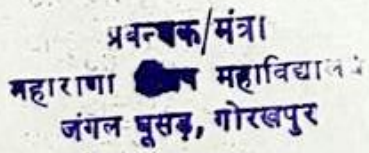 प्रबन्धक/मंत्री
महाराणा महाविद्यालय
जंगल धूसड़, गोरखपुर